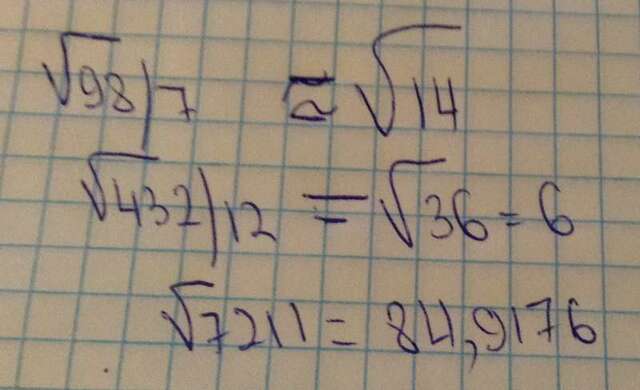 √98/7 ≃ √14
√432/12 = √36 = 6
√7211 = 84,9176